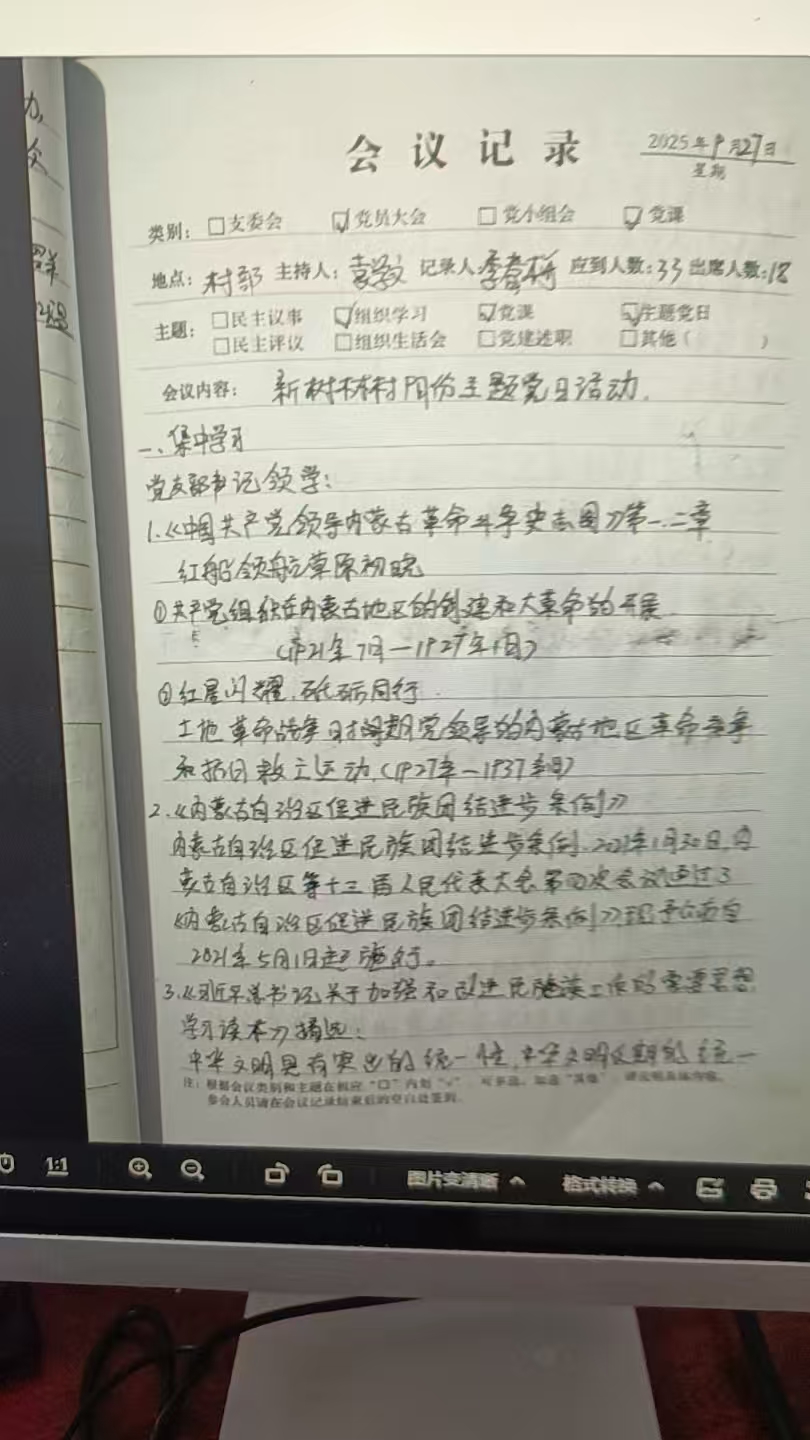 会议记录
2025年9月27日
星期
类别：□支委会 ☑党员大会 □党小组会 ☑党课
地点：村部 主持人：袁学文 记录人：李春梅 应到人数：33 出席人数：18
主题：□民主议事 ☑组织学习 ☑党课 ☑主题党日
□民主评议 □组织生活会 □党建述职 □其他（ ）
会议内容：新树林村9月份主题党日活动.
一、集中学习
党支部书记领学：
1.《中国共产党领导内蒙古革命斗争史画图》第一、二章
红船领航草原初晓
①共产党组织在内蒙古地区的创建和大革命的开展
（1921年7月—1927年1月）
②红星闪耀，砥砺同行.
土地革命战争时期党领导的内蒙古地区革命斗争
和抗日救亡运动.（1927年—1937年）
2.《内蒙古自治区促进民族团结进步条例》
内蒙古自治区促进民族团结进步条例.2021年1月30日,内
蒙古自治区第十三届人民代表大会第四次会议通过了
《内蒙古自治区促进民族团结进步条例》现予公布自
2021年5月1日起施行。
3.《习近平总书记关于加强和改进民族工作的重要思想
学习读本》摘选：
中华文明具有突出的统一性,中华文明长期的统一
注：根据会议类别和主题在相应“口”内划“√”，可多选，如选“其他”，请注明具体内容。
参会人员请在会议记录结束后的空白处签到。
1:1
图片变清晰
格式转换